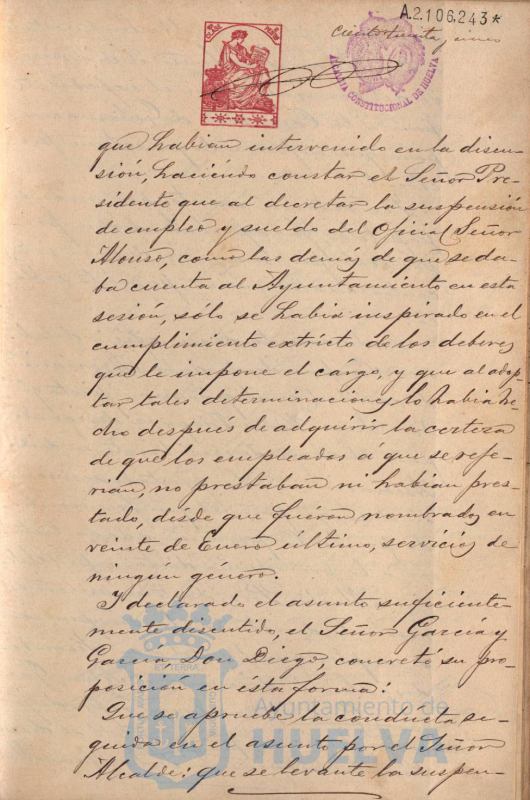 A.2106.243*
Ciento treinta y cinco
ALCALDIA CONSTITUCIONAL DE HUELVA
que habian intervenido en la discu-
sión, haciendo constar el Señor Pre-
sidente que al decretar la suspensión
de empleo y sueldo del oficial Señor
Alonso, como las demás de que se da-
ba cuenta al Ayuntamiento en esta
sesión, sólo se habia inspirado en el
cumplimiento extricto de los deberes
que le impone el cárgo, y que al adop-
tar tales determinaciones lo habia he-
cho después de adquirir la certeza
de que los empleados á que se refe-
rian, no prestaban ni habian pres-
tado, désde que fuéron nombrados en
veinte de Enero último, servicios de
ningún género.
Y declarado el asunto suficiente-
mente discutido, el Señor García y
García, Don Diego, concretó su pro-
posición en ésta forma:
Que se apruebe la conducta se-
guida en el asunto por el Señor
Alcalde: que se levante la suspen-
Ayuntamiento de
HUELVA